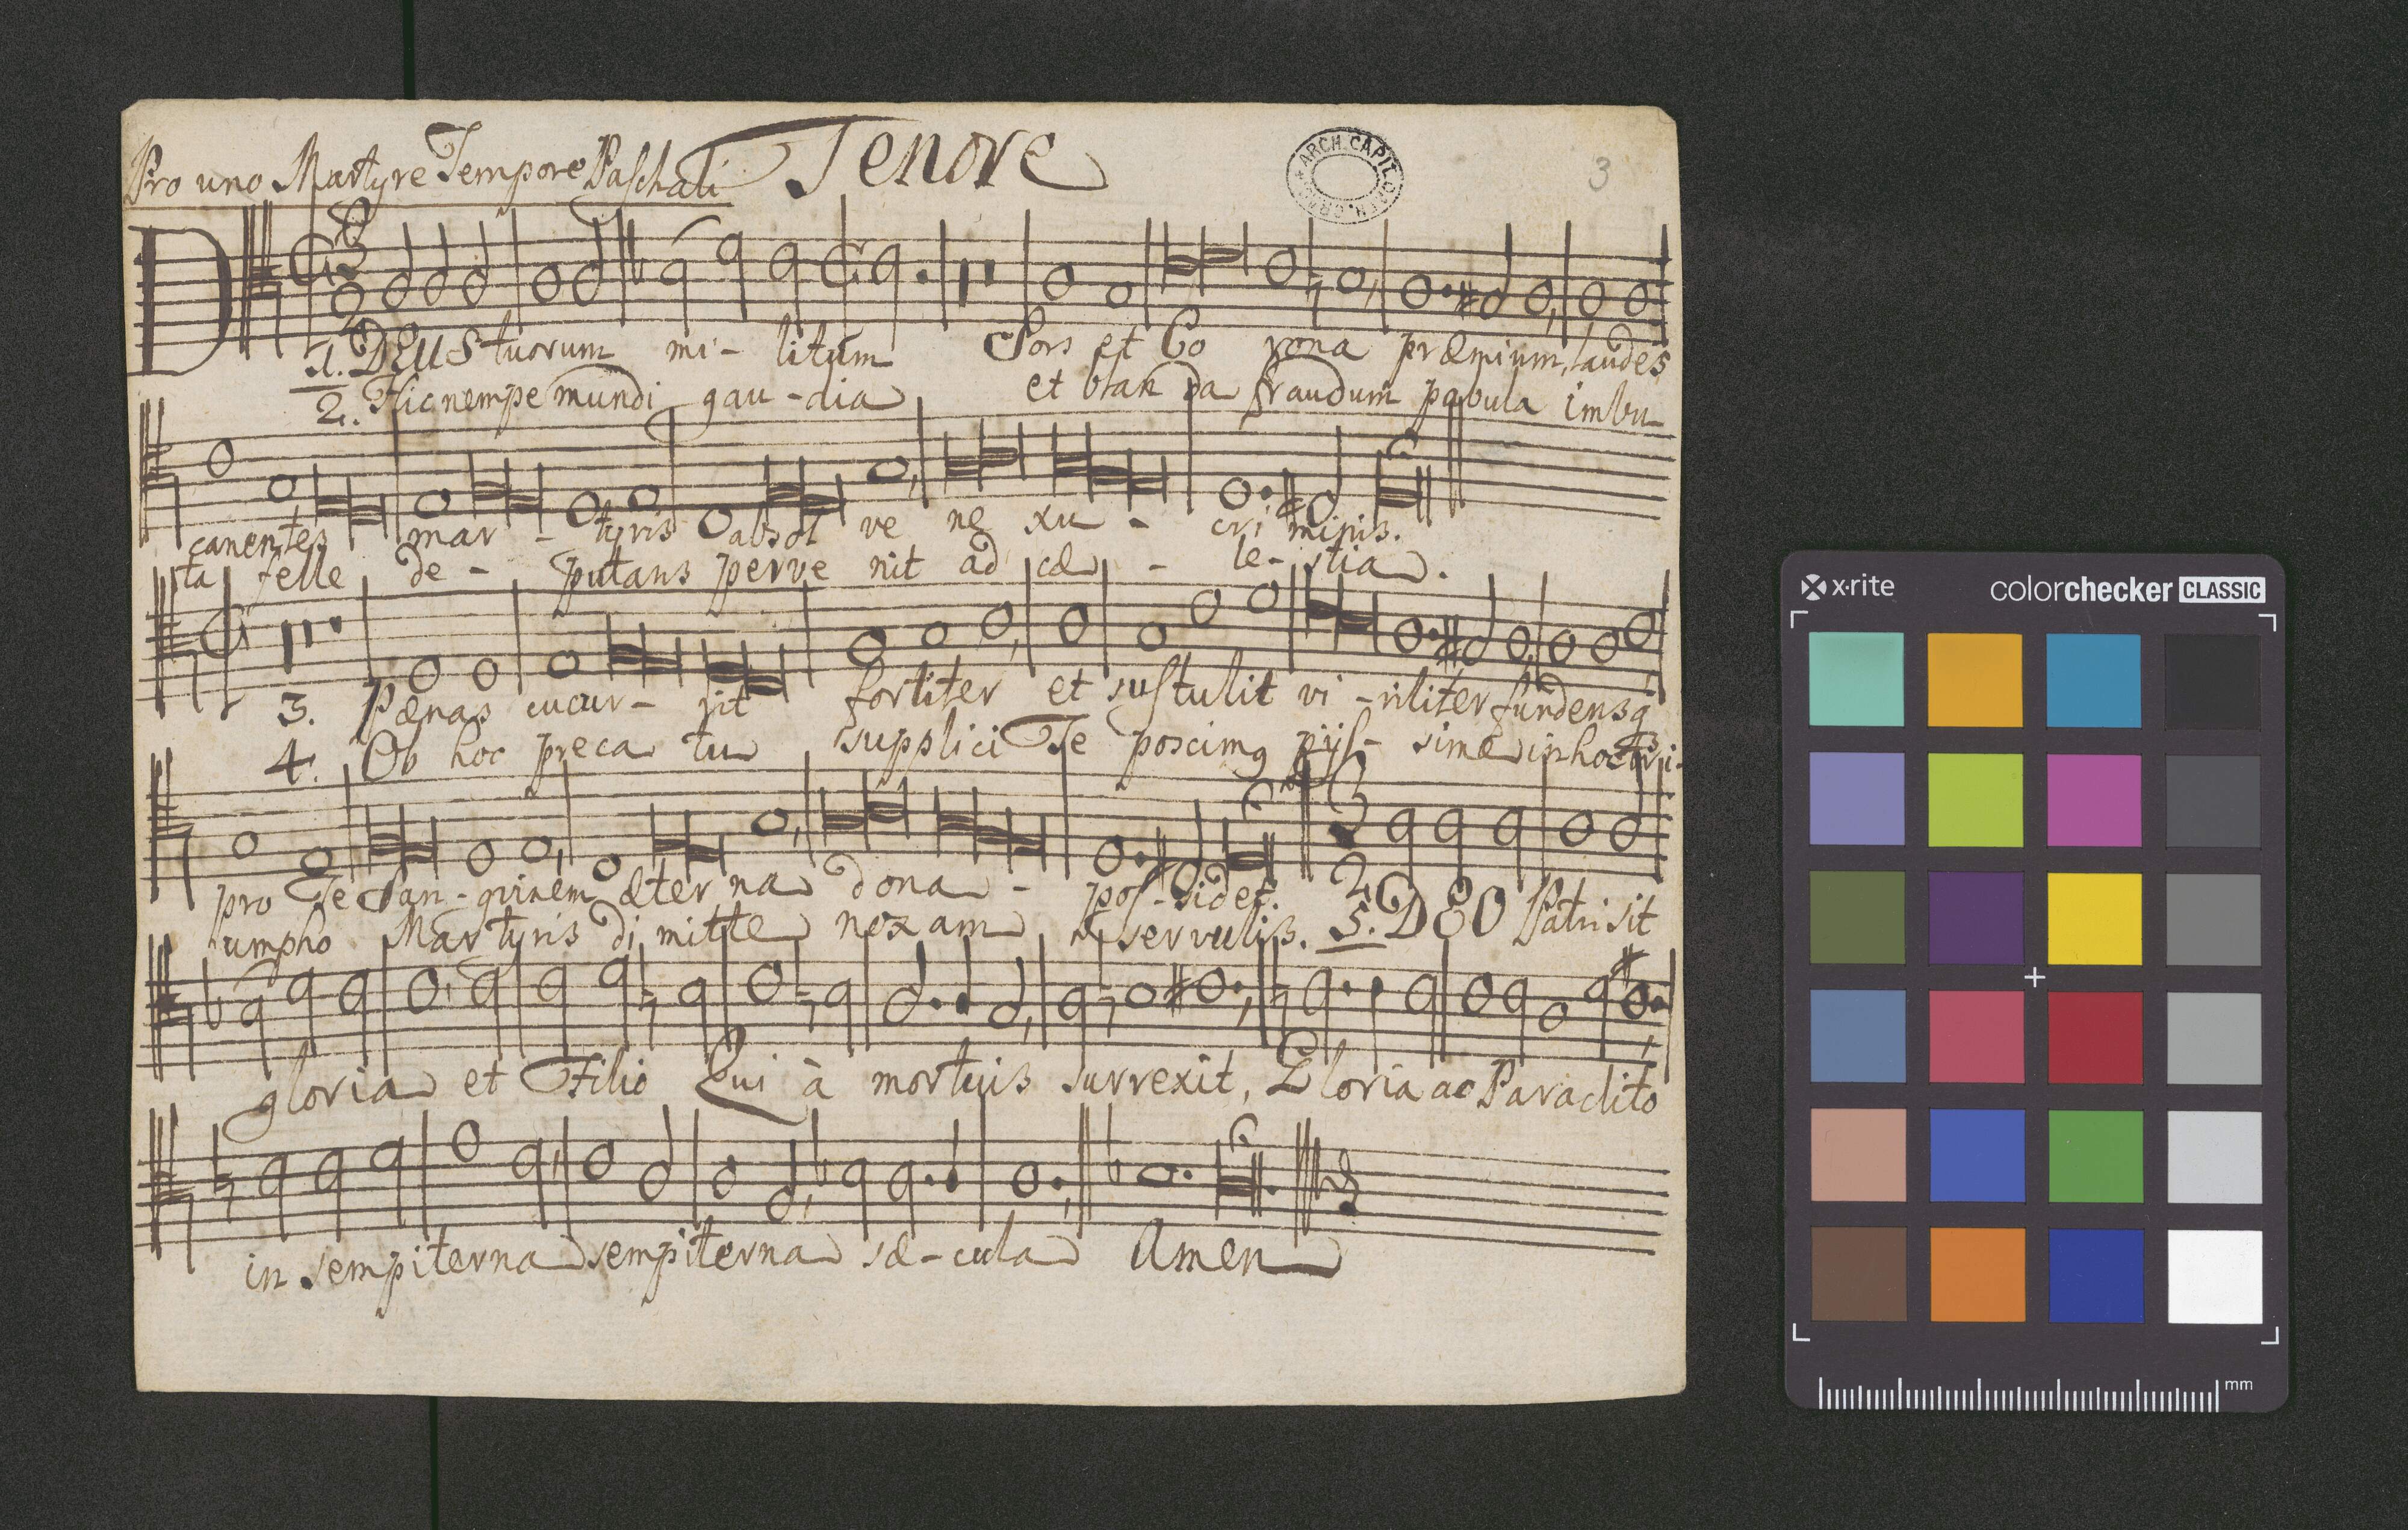 Pro uno Martyre Tempore Paschali Tenore
ARCH. CAPIT.
3
1. DEUS tuorum mi- litum Sors et Co rona præmium, laudes
2. Hic nempe mundi gau-dia et blan da fraudum pabula imbu-
canentes mar - tyris absol ve ne xu - cri minis.
ta felle de - putans perve nit ad cæ - le-stia.
3. Pænas cucur- rit fortiter et sustulit vi-riliter fundensq
4. Ob hoc preca tu supplici Te poscimq pijs- sime in hoc tri-
pro Te San-guinem æter na dona - pos-sidet. 5. DEO Patri sit
umpho Martyris di mitte noxam servulis.
gloria et Filio Qui à mortuis surrexit, Gloria ac Paraclito
in sempiterna sempiterna sæ-cula Amen
x·rite colorchecker CLASSIC
mm